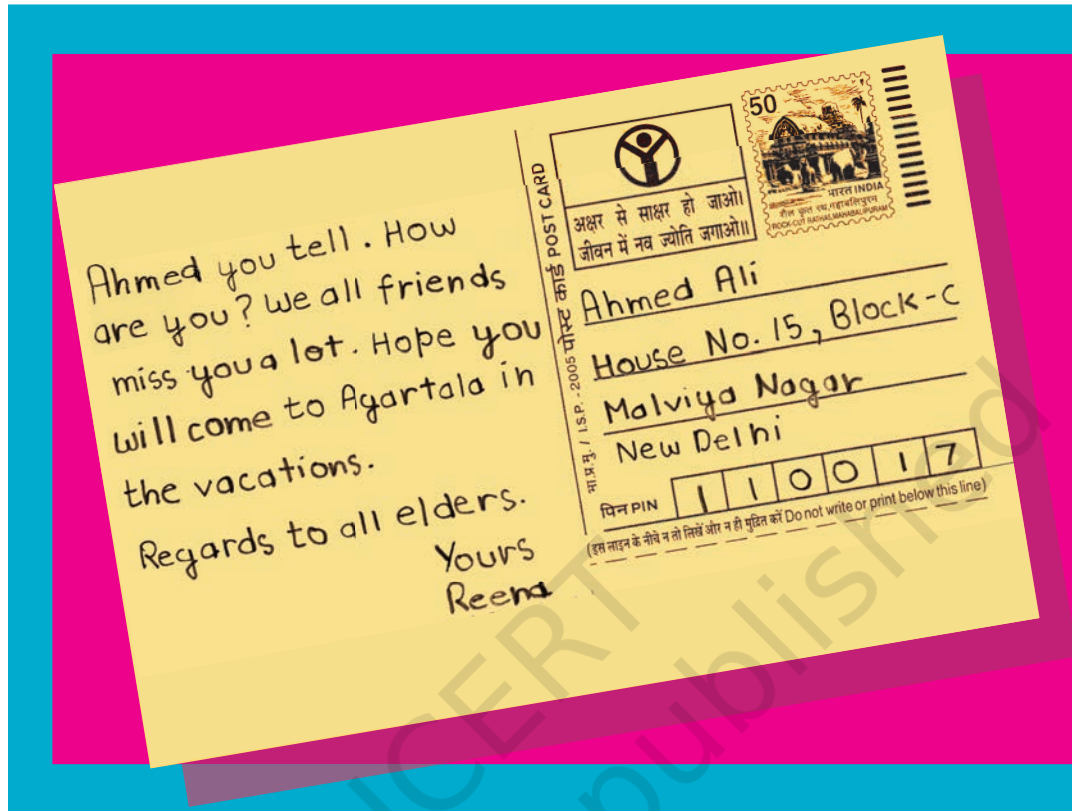 Ahmed you tell. How
are you? We all friends
miss you a lot. Hope you
will come to Agartala in
the vacations.
Regards to all elders.
Yours
Reena
भा.प्र.मु. / I.S.P. - 2005 पोस्ट कार्ड POST CARD
अक्षर से साक्षर हो जाओ।
जीवन में नव ज्योति जगाओ॥
50
भारत INDIA
शैल कृत रथ, महाबलिपुरम
ROCK-CUT RATHAS, MAHABALIPURAM
Ahmed Ali
House No. 15, Block-C
Malviya Nagar
New Delhi
पिन PIN 110017
(इस लाइन के नीचे न तो लिखें और न ही मुद्रित करें Do not write or print below this line)
NCERT
published